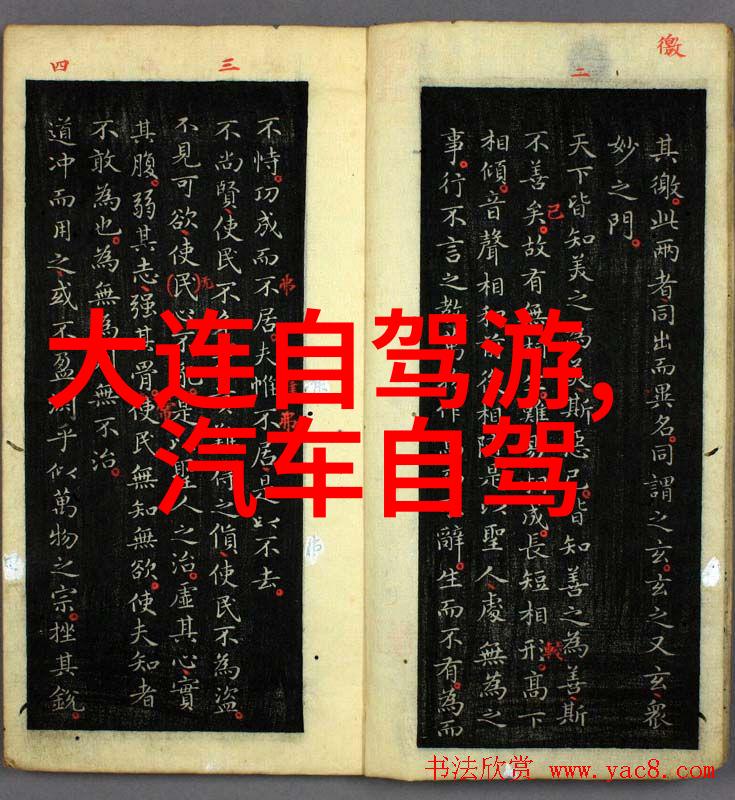 徼
二
其徼。此两者同出而異名。同謂之玄。玄之又玄。衆
妙之門。
天下皆知美之為斯惡已。皆知善之為善斯
不善矣。故有無相難易成。長短相形。高下
相傾。音聲相和前後相是以聖人處無為之
事。行不言之教萬作而辭。生而不有。為而
三
四
不恃。功成而不居。夫惟不居。是以不去。
不尚賢、使民不難得之貨、使民不為盜。
不見可欲、使民心不亂。是以聖人之治。虛其心、實
其腹。弱其志、强其骨。使民無知無欲。使夫知者
不敢為也。為無為無不治。
道冲而用之、或不盈。淵乎似萬物之宗。挫其銳。
大连自驾游,
汽车自驾
书法欣赏 www.yac8.com